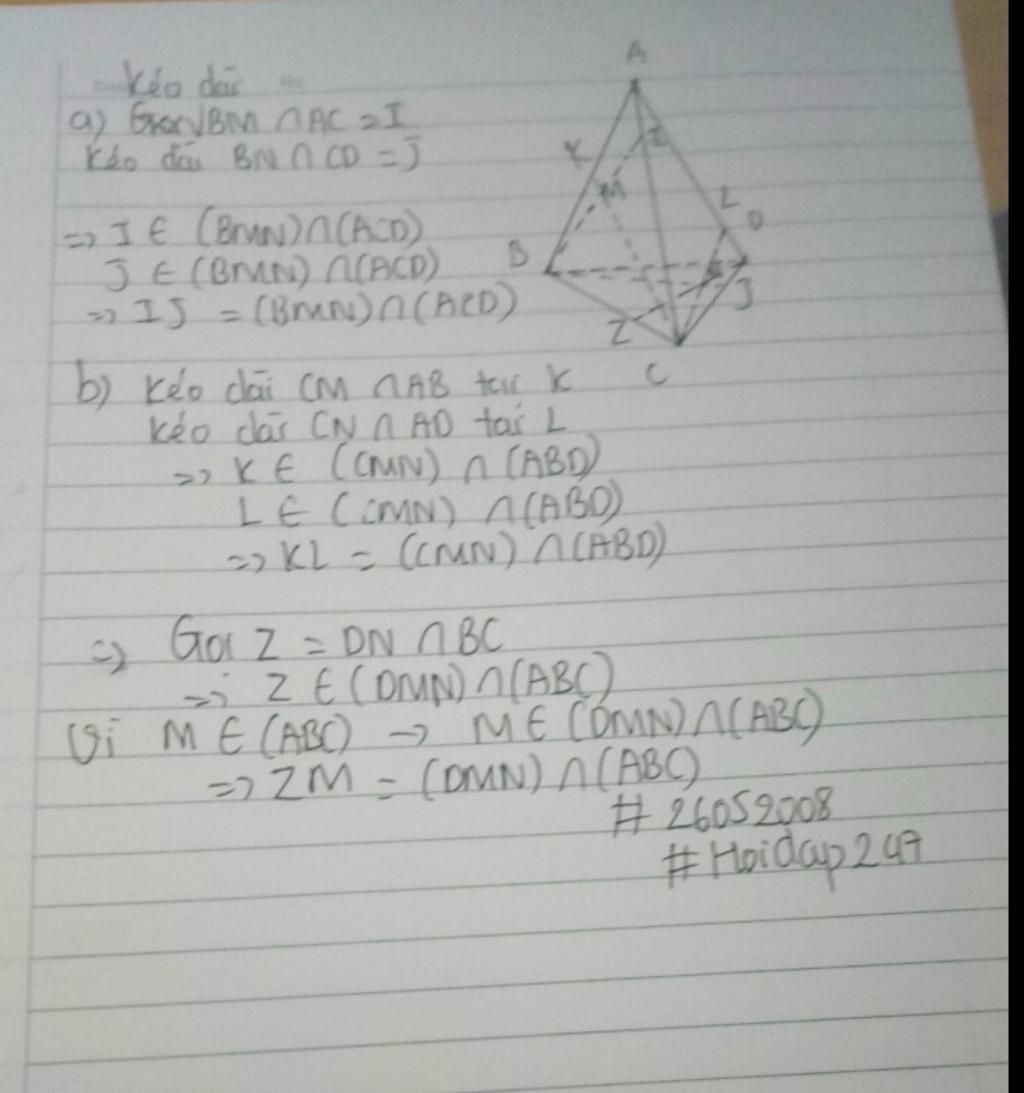 Kéo dài
a) Gọi BM ∩ AC = I
Kéo dài BN ∩ CD = J
=> I ∈ (BMN) ∩ (ACD)
J ∈ (BMN) ∩ (ACD)
=> IJ = (BMN) ∩ (ACD)
b) Kéo dài CM ∩ AB tại K
Kéo dài CN ∩ AD tại L
=> K ∈ (CMN) ∩ (ABD)
L ∈ (CMN) ∩ (ABD)
=> KL = (CMN) ∩ (ABD)
c) Gọi Z = DN ∩ BC
=> Z ∈ (DMN) ∩ (ABC)
Vì M ∈ (ABC) -> M ∈ (DMN) ∩ (ABC)
=> ZM = (DMN) ∩ (ABC)
# 26052008
# Hoidap247
A
K
I
M
L
D
B
J
Z
C